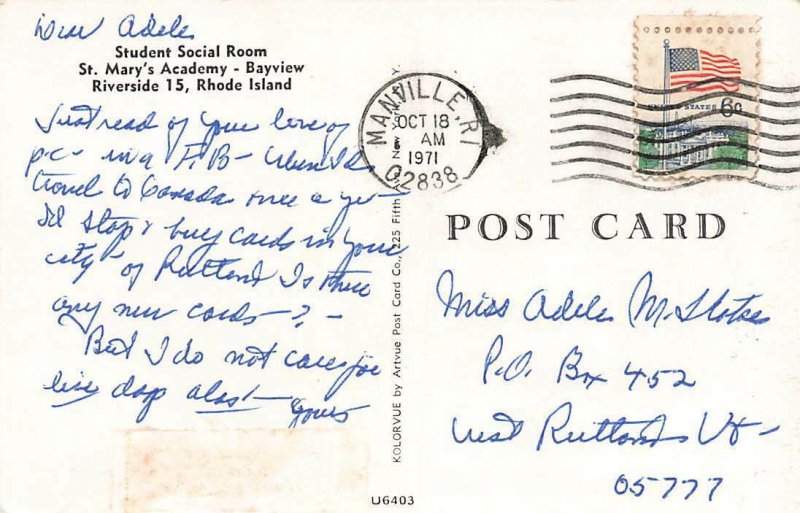 Dear Adele
Student Social Room
St. Mary's Academy - Bayview
Riverside 15, Rhode Island
Just read of your love of
p c - in a F. B - When I'd
travel to Canada once a yr -
I'd stop & buy cards in your
city - of Rutland Is there
any new cards - ? -
But I do not care for
dogs alas! -
Yours
MANVILLE, RI
OCT 18
AM
1971
02838
UNITED STATES 6¢
KOLORVUE by Artvue Post Card Co., 225 Fifth
POST CARD
Miss Adele M.
P.O. Box 452
West Rutland Vt -
05777
U6403